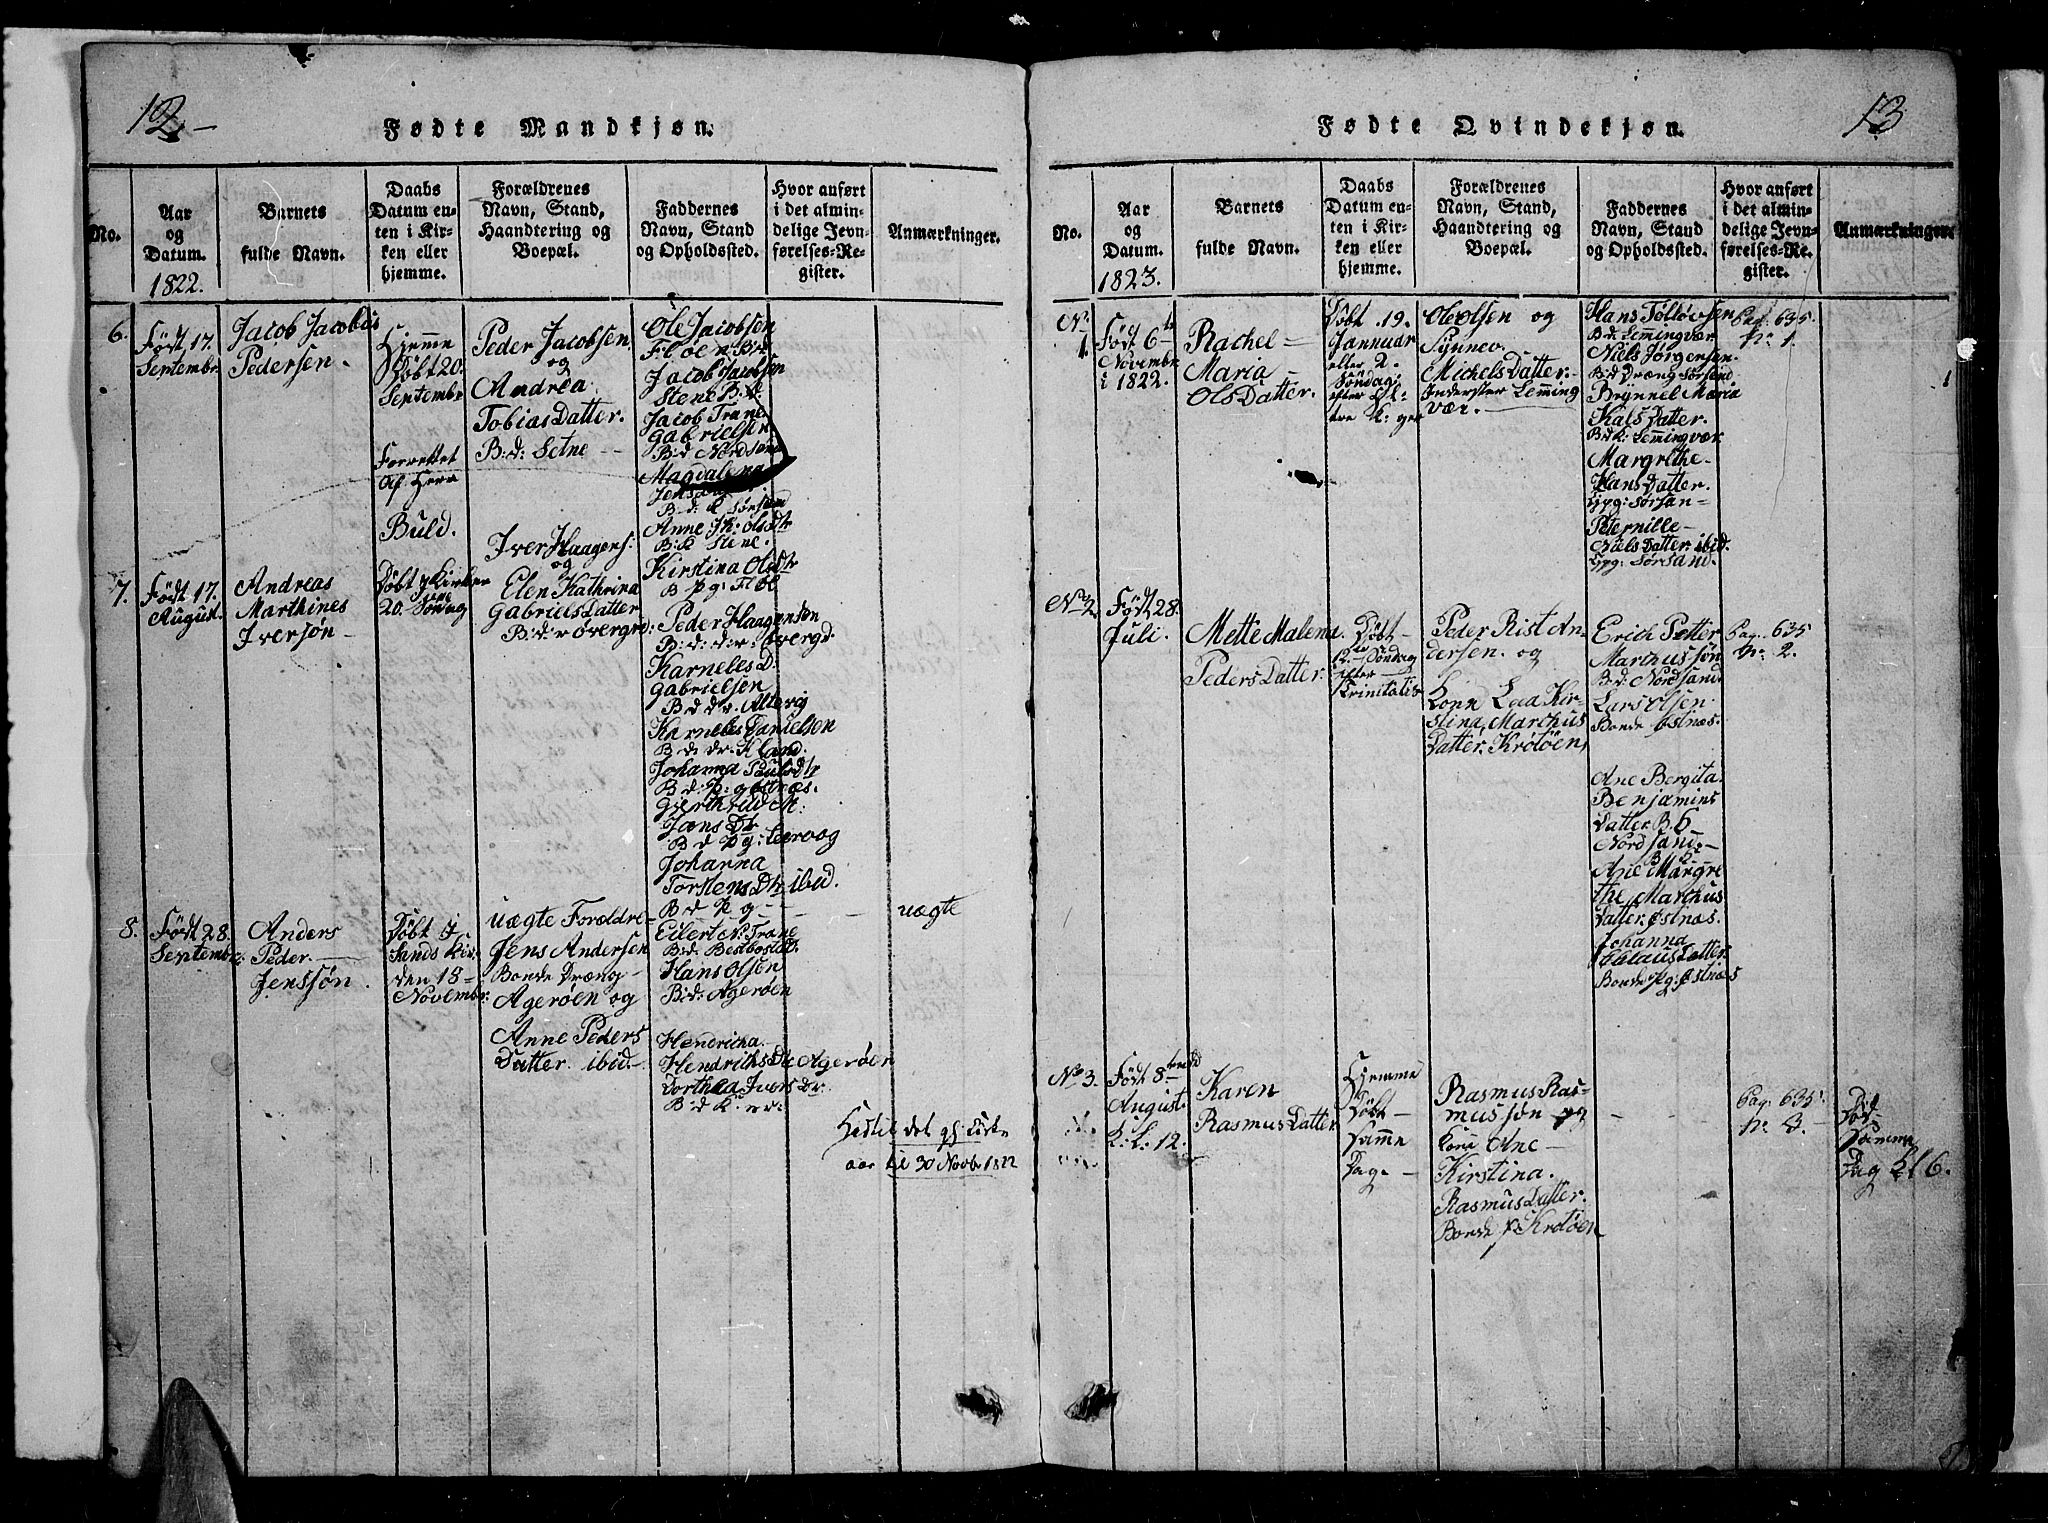 12
Fødte Mandkjøn.
No.
Aar
og
Datum.
1822.
Barnets
fulde Navn.
Daabs
Datum en-
ten i Kir-
ken eller
hjemme.
Forældrenes
Navn, Stand,
Haandtering og
Boepæl.
Faddernes
Navn, Stand
og Opholdssted.
Hvor anført
i det almin-
delige Jevn-
førelses-Re-
gister.
Anmærkninger.
6.
Født 17.
Septembr
Jacob Jacobus
Pedersen.
Hjemme
Døbt 20.
Septembr
Forrettet
af Herr
Buld.
Peder Jacobsen
og
Andrea
Tobias Datter.
B: d: Setne
Ole Jacobsen
Fløen B: d
Jacob Jacobsen
Stene B: d:
Jacob Trane
Gabrielsen
B: d Nordsand
Magdalena
B: d: K Sørsand
Anne Olsdtr
B: K Stine.
Kirstina Olsdtr
B pg: Fløe
7.
Født 17.
August.
Andreas
Marthines
Iversøn
Døbt i Kirken
20. Søndag
Iver Haagens:
og
Elen Kathrina
Gabriels Datter
B: d: v øvergrd:
Peder Haagensøn
B: d: dr: øvergd.
Karneles D:
Gabrielsen
B d dr. Altervig
Karneles Danielsen
B: d: dr: Kland.
Johanna Paulsdtr
B: d: P: gøstnæs.
Gjerthrud M:
Jæns Dtr
B d Pg: Leervog
Johanna
Torstens Dtr ibid.
B d P g
8.
Født 28.
Septembr.
Anders
Peder
Jenssøn.
Døbt i
Sands Kir.
den 18
Novembr:
uægte Forældre
Jens Andersen
Bonde Dræng
Agerøen og
Anne Peders
Datter ibid.
Eilert N. Trane
B: d: Bedbostad.
Hans Olsøn
B: d: Agerøen
Hendricha
Hendrichs Dtr Agerøen
Dorthea Ivers Dr:
B: d K. er:
uægte
Hertil det gl. Kirke
aar til 30 Novb 1822
13
Fødte Qvindekjøn.
No.
Aar
og
Datum.
1823.
Barnets
fulde Navn.
Daabs
Datum en-
ten i Kir-
ken eller
hjemme.
Forældrenes
Navn, Stand,
Haandtering og
Boepæl.
Faddernes
Navn, Stand
og Opholdssted.
Hvor anført
i det almin-
delige Jevn-
førelses-Re-
gister.
Anmærkninger.
No
1.
Født 6te
Novembr
i 1822.
Rachel
Maria
Ols Datter.
Døbt 19.
Jannuar
eller 2.
Søndag
efter H:
tre K: ger
Ole Olsen og
Synnev.
Michels Datter.
Inderster Lemming
vær.
Hans Tølløvsen
B: d: Lemmingvær
Niels Jørgensen.
B: d: Dræng Sørsand
Brynnel Maria
Kals Datter.
B: d K: Lemmingvær
Margrethe
Hans Datter.
pg: Sørsan-
Pternille
Niels Datter ibid.
pg: Sørsand.
Pag: 635.
No 1.
No 2.
Født 28.
Juli.
Mette Malena.
Peders Datter
Døbt
12te Søndag
efter
Trinitatis
Peder Rist An-
dersen. og
Kone Lea Kir-
stina Marchus
Datter. Krøtøen
Erich Petter
Marchussøn
B: d: Nordsand
Lars Olsen
Bonde Østnæs.
Ane Bergita
Benjamins
Datter B. 6
Nordsand.
B K:
Ane Margre
the Marchus
Datter østnæs.
Johanna
Eblaus Datter
Bonde Pg: Østnæs
Pag. 635
No 2.
No 3.
Født 8tende
August.
K. L. 12.
Karen
Rasmus Datter
Hjemme
Døbt
Samme
Dag
Rasmus Ras-
mussøn og
Kone Ane
Kirstina.
Rasmus Datter.
Bonde p: Krøtøen
Pag: 635.
No 3.
Død
Samme
Dag Kl 6.